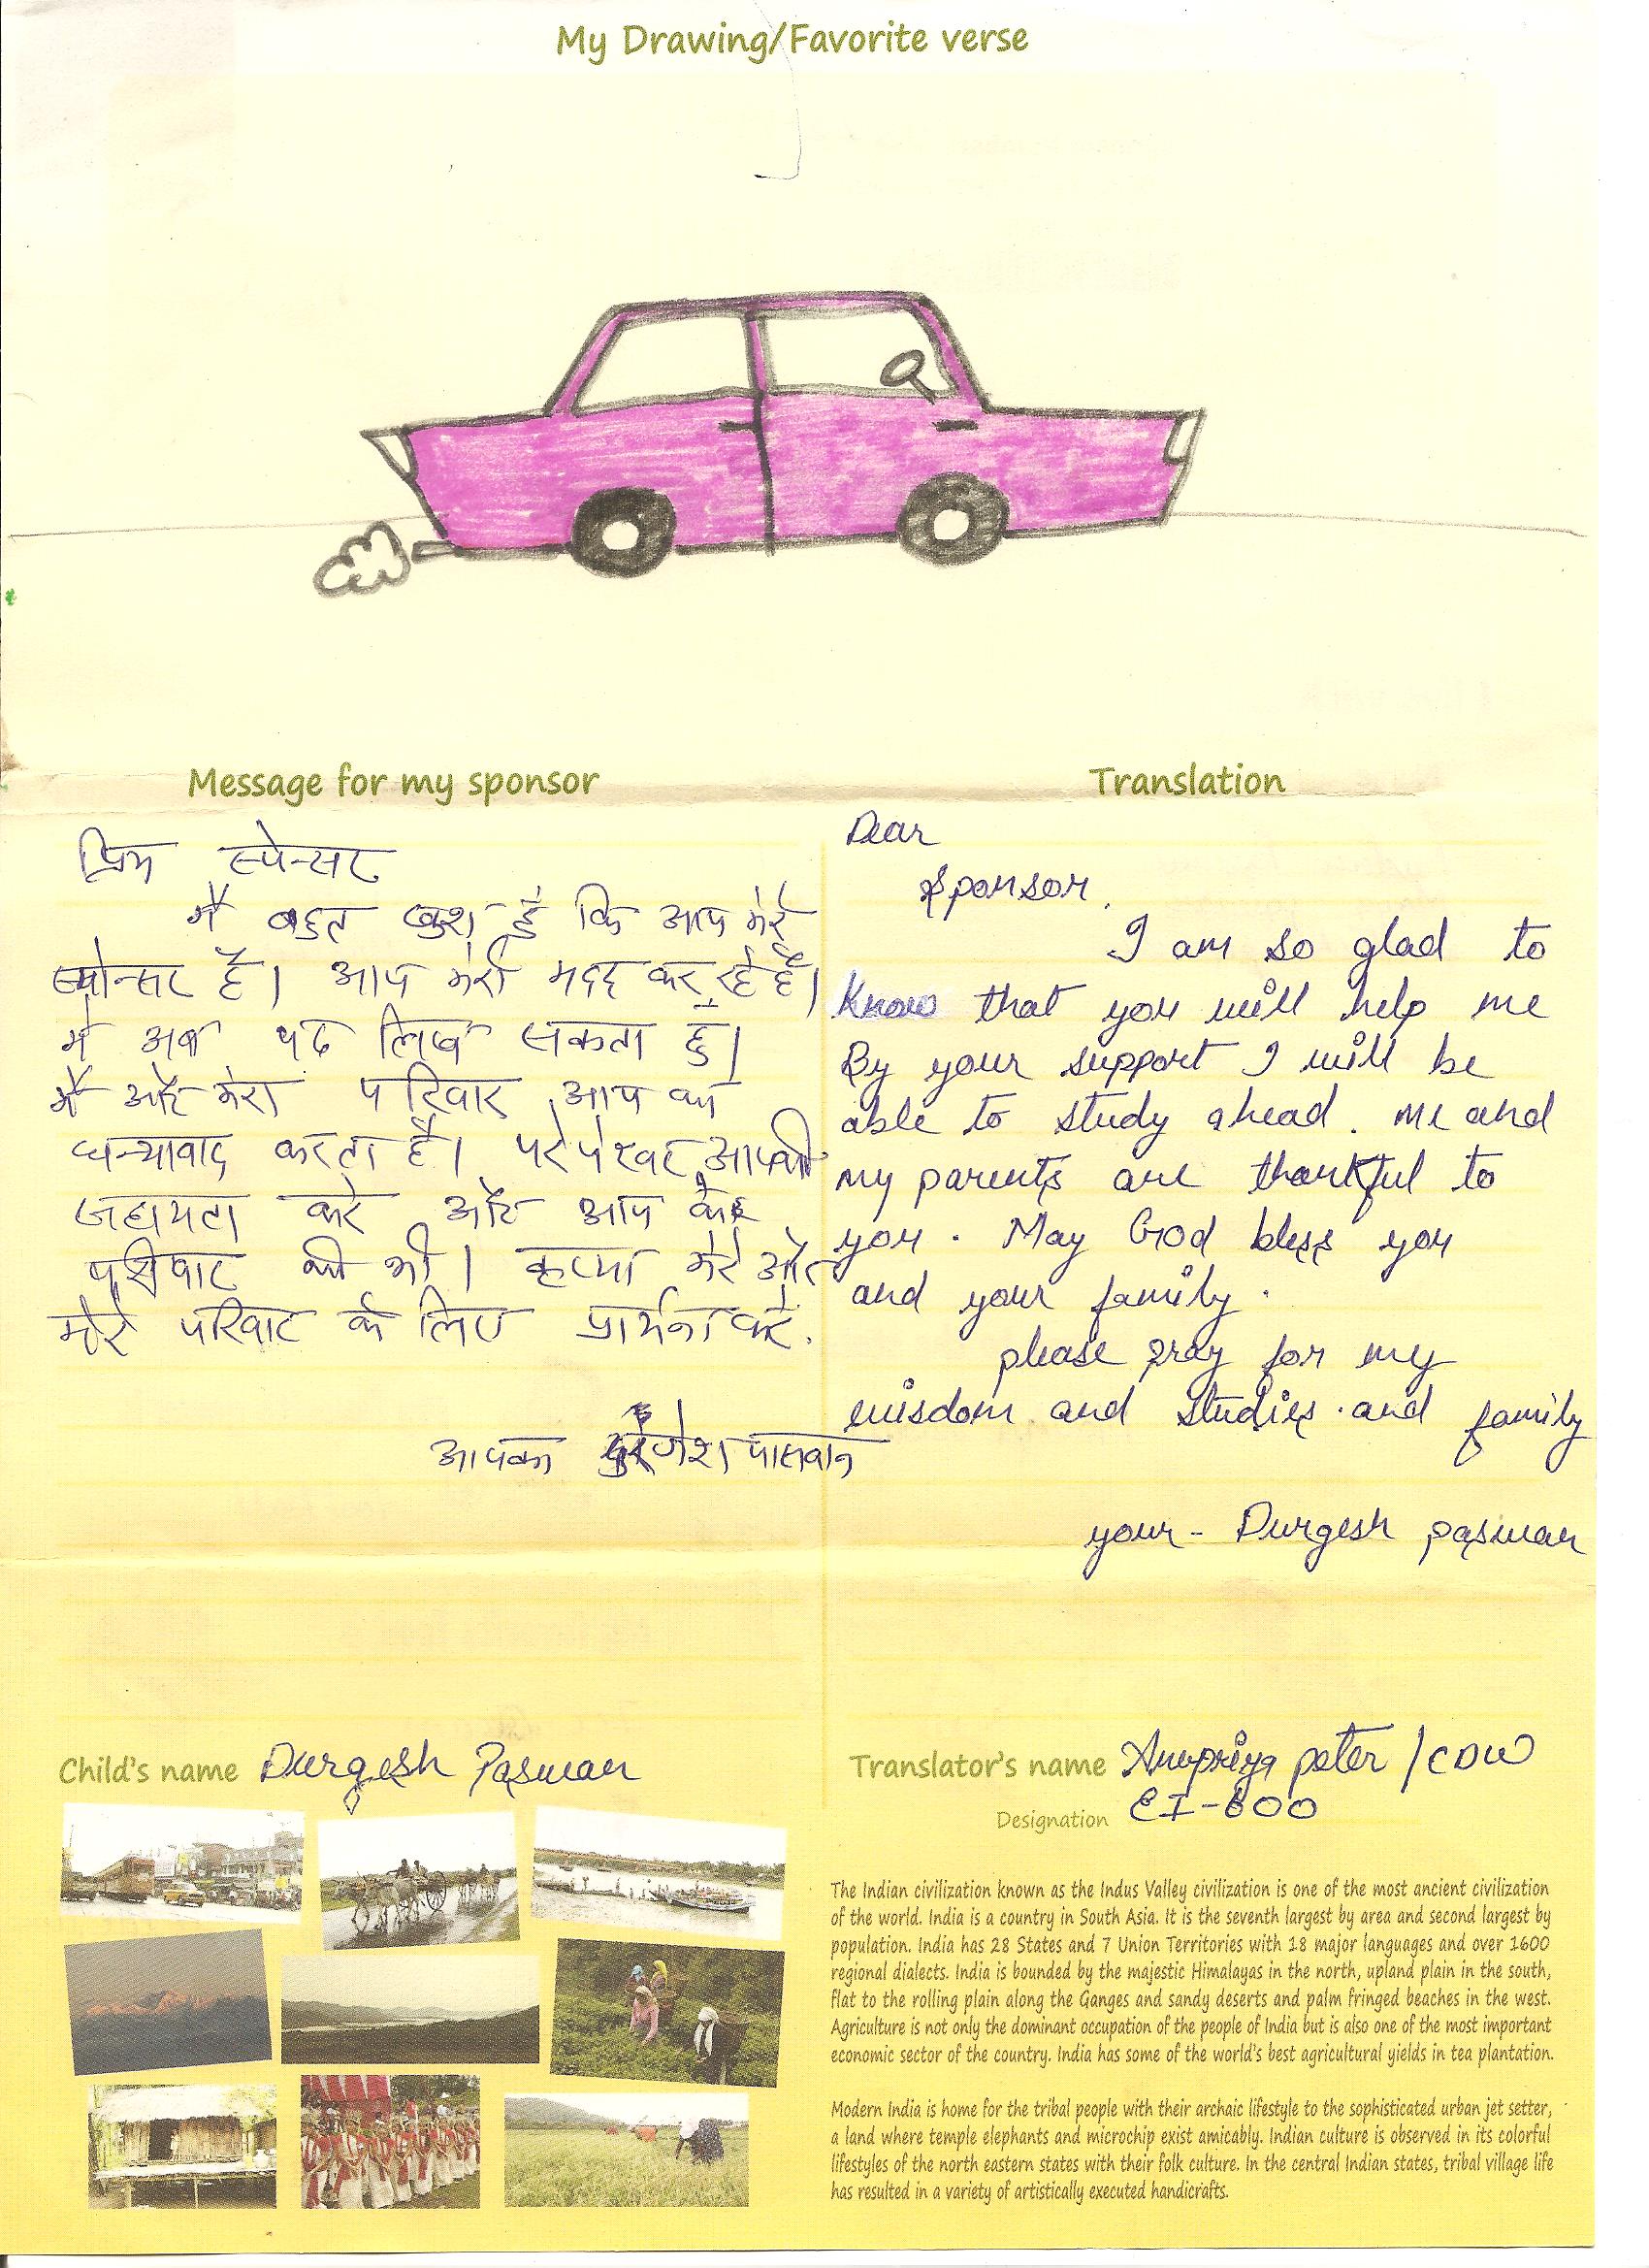 My Drawing/Favorite verse
Message for my sponsor
प्रिय स्पेन्सर
मैं बहुत खुश हूं कि आप मेरे
स्पोन्सर हैं। आप मेरी मदद कर रहे हैं।
मैं अब पढ लिख सकता हूं।
मैं और मेरा परिवार आप का
धन्यावाद करता है। आपकी
करे और आप के
परिवार की भी। मेरे और
मेरे परिवार के लिए करे.
आपका पासवान
Translation
Dear
Sponsor,
I am so glad to
know that you will help me
By your support I will be
able to study ahead. me and
my parents are thankful to
you. May God bless you
and your family.
please pray for my
wisdom and studies. and family
your - Durgesh paswan
Child's name Durgesh Paswan
Translator's name Anupriya peter / CDW
Designation EI-600
The Indian civilization known as the Indus Valley civilization is one of the most ancient civilization
of the world. India is a country in South Asia. It is the seventh largest by area and second largest by
population. India has 28 States and 7 Union Territories with 18 major languages and over 1600
regional dialects. India is bounded by the majestic Himalayas in the north, upland plain in the south,
flat to the rolling plain along the Ganges and sandy deserts and palm fringed beaches in the west.
Agriculture is not only the dominant occupation of the people of India but is also one of the most important
economic sector of the country. India has some of the world's best agricultural yields in tea plantation.
Modern India is home for the tribal people with their archaic lifestyle to the sophisticated urban jet setter,
a land where temple elephants and microchip exist amicably. Indian culture is observed in its colorful
lifestyles of the north eastern states with their folk culture. In the central Indian states, tribal village life
has resulted in a variety of artistically executed handicrafts.